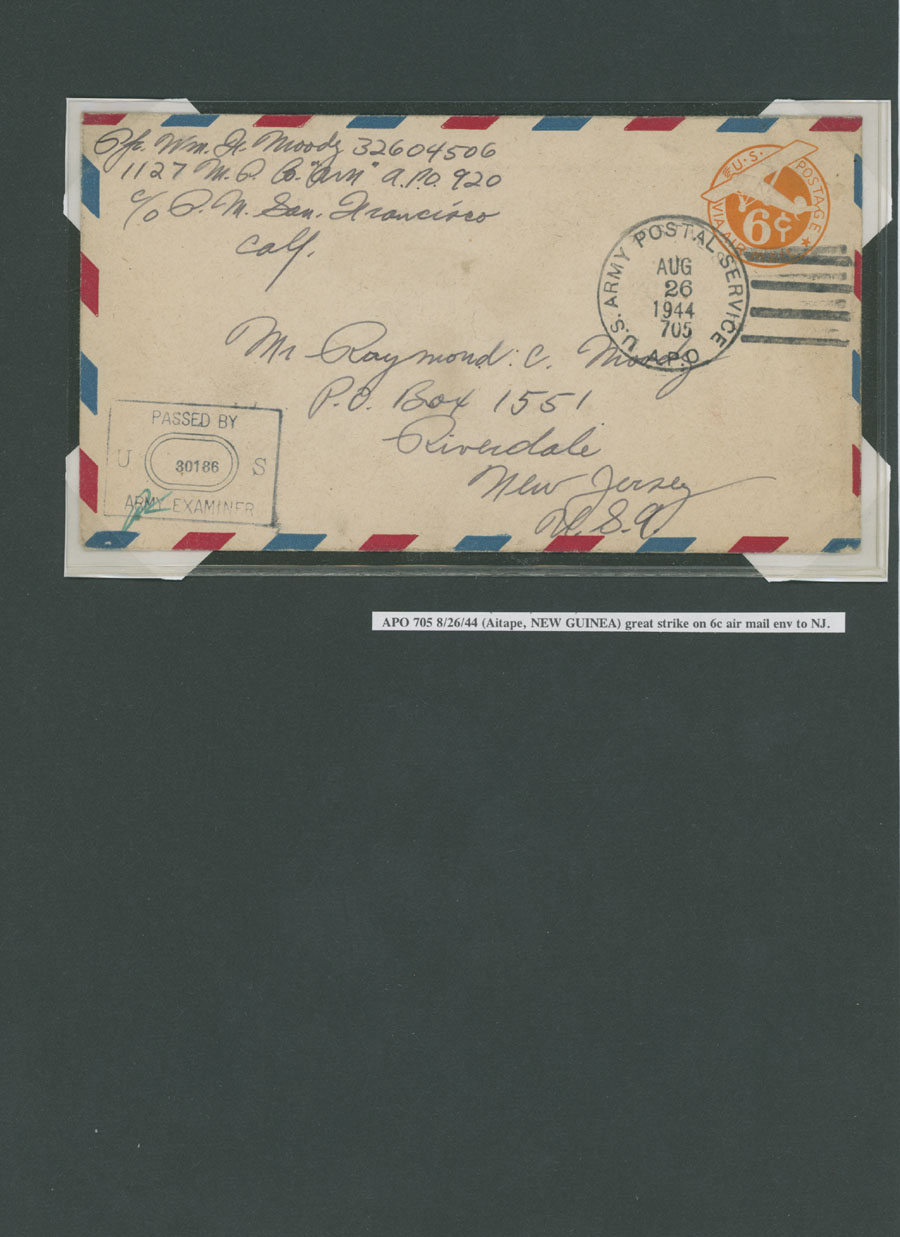 Pfc. Wm. H. Moody 32604506
1127 M.P. Co. "Avn" A.P.O. 920
c/o P. M. San. Francisco
Calf.
U.S. POSTAGE
VIA AIR
6¢
U.S. ARMY POSTAL SERVICE
AUG
26
1944
705
A.P.O.
Mr Raymond. C. Moody
P.O. Box 1551
Riverdale
New Jersey
U.S.A
PASSED BY
U 30186 S
ARMY EXAMINER
APO 705 8/26/44 (Aitape, NEW GUINEA) great strike on 6c air mail env to NJ.